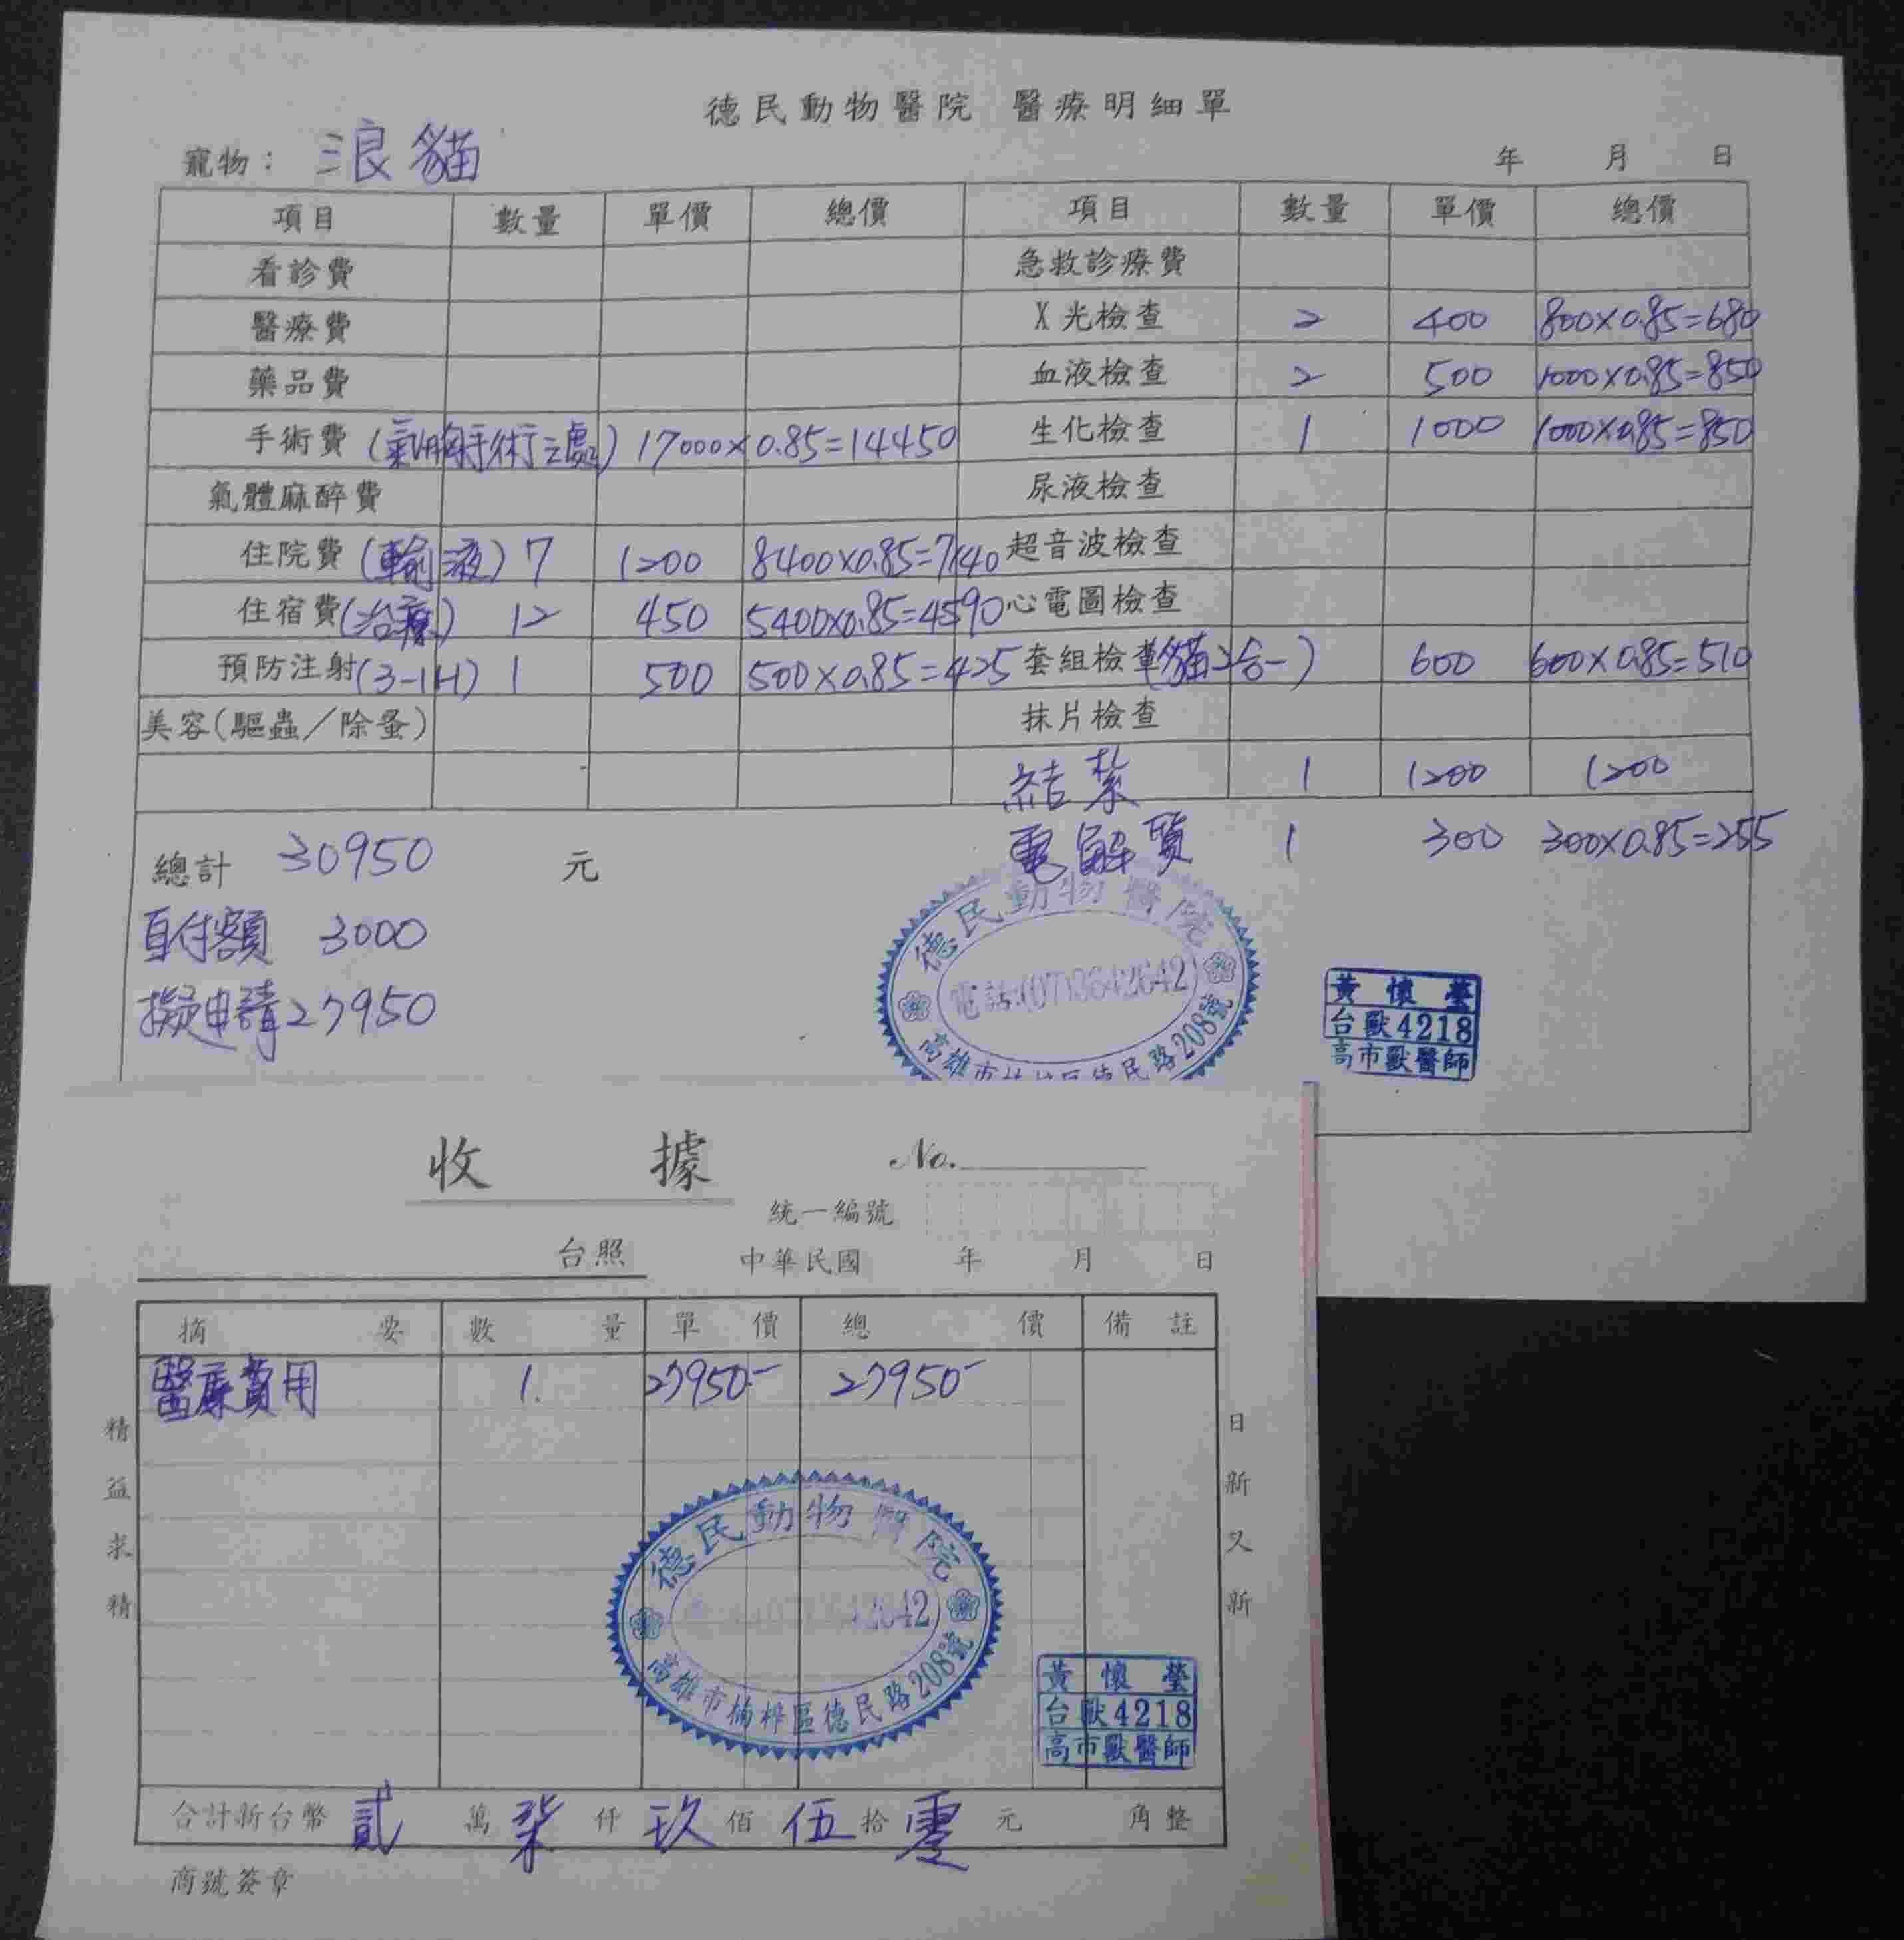 德民動物醫院 醫療明細單
寵物： 浪貓 年 月 日
項目 數量 單價 總價 項目 數量 單價 總價
看診費 急救診療費
醫療費 X光檢查 2 400 800×0.85=680
藥品費 血液檢查 2 500 1000×0.85=850
手術費 (氣胸手術2處) 17000×0.85=14450 生化檢查 1 1000 1000×0.85=850
氣體麻醉費 尿液檢查
住院費 (輸液) 7 1200 8400×0.85=7140 超音波檢查
住宿費 (治療) 12 450 5400×0.85=4590 心電圖檢查
預防注射 (3-1H) 1 500 500×0.85=425 套組檢查 (貓2合一) 600 600×0.85=510
美容(驅蟲／除蚤) 抹片檢查
結紮 1 1200 1200
總計 30950 元 電解質 1 300 300×0.85=255
自付額 3000
擬申請 27950
德民動物醫院
電話:(07)3642642
高雄市 德民路208號
黃懷瑩
台獸4218
高市獸醫師
收據 No.
統一編號
台照 中華民國 年 月 日
摘要 數量 單價 總價 備註
醫療費用 1. 27950- 27950-
精益求精
日新又新
德民動物醫院
2642
高雄市楠梓區德民路208號
黃懷瑩
台獸4218
高市獸醫師
合計新台幣 貳 萬 柒 仟 玖 佰 伍 拾 零 元 角整
商號簽章